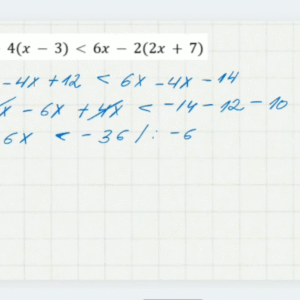 4(x − 3) < 6x − 2(2x + 7)
-4x + 12 < 6x - 4x - 14
x - 6x + 4x < -14 - 12 - 10
6x < -36 / : -6